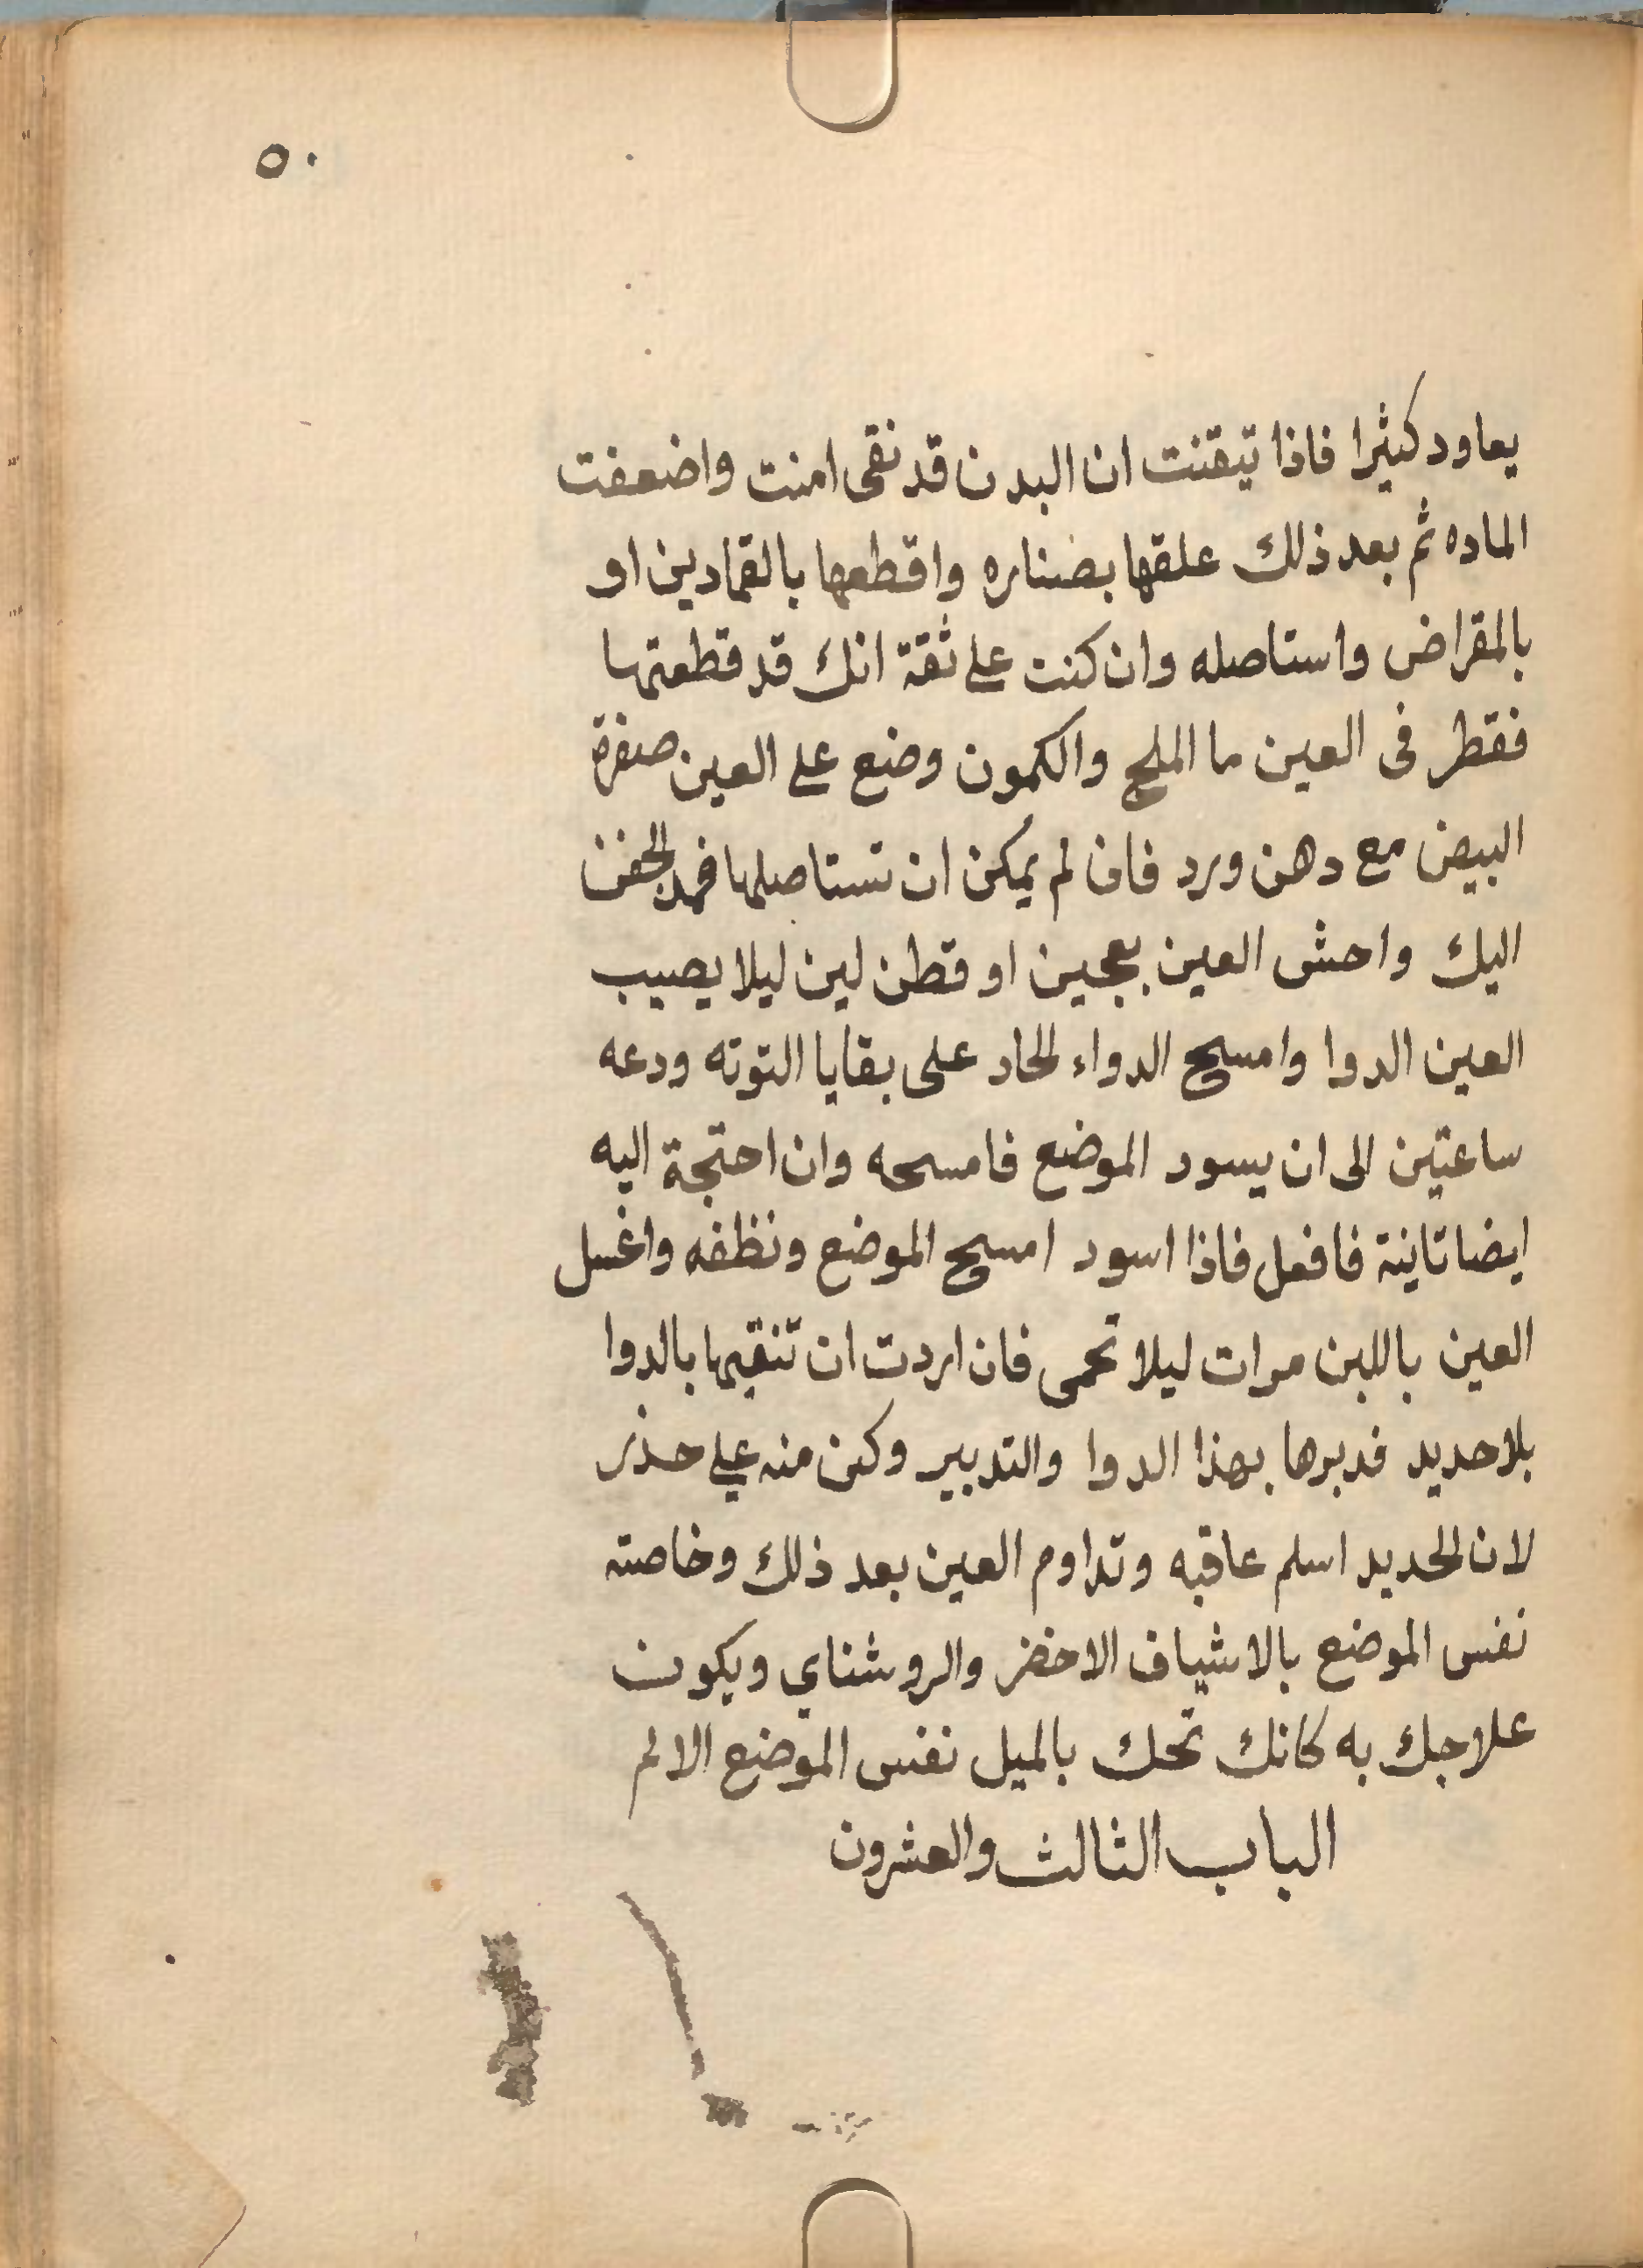 ٥٠
يعاود كثيرا فاذا تيقنت ان البدن قد نقى امنت واضعفت
الماده ثم بعد ذلك علقها بصناره واقطعها بالقمادين او
بالمقراض واستاصله وان كنت على ثقة انك قد قطعتها
فقطر فى العين ما الملح والكمون وضع على العين صفرة
البيض مع دهن ورد فان لم يمكن ان تستاصلها فمد الجفن
اليك واحش العين بعجين او قطن لين ليلا يصيب
العين الدوا وامسح الدواء الحاد على بقايا التوته ودعه
ساعتين الى ان يسود الموضع فامسحه وان احتجة اليه
ايضا تاينة فافعل فاذا اسود امسح الموضع ونظفه واغسل
العين باللبن مرات ليلا تحمى فان اردت ان تنقيها بالدوا
بلا حديد فدبرها بهذا الدوا والتدبير وكن منه على حذر
لان الحديد اسلم عاقبه وتداوم العين بعد ذلك وخاصته
نفس الموضع بالاشياف الاخضر والروشناي ويكون
علاجك به كانك تحك بالميل نفس الموضع الالم
الباب الثالث والعشرون